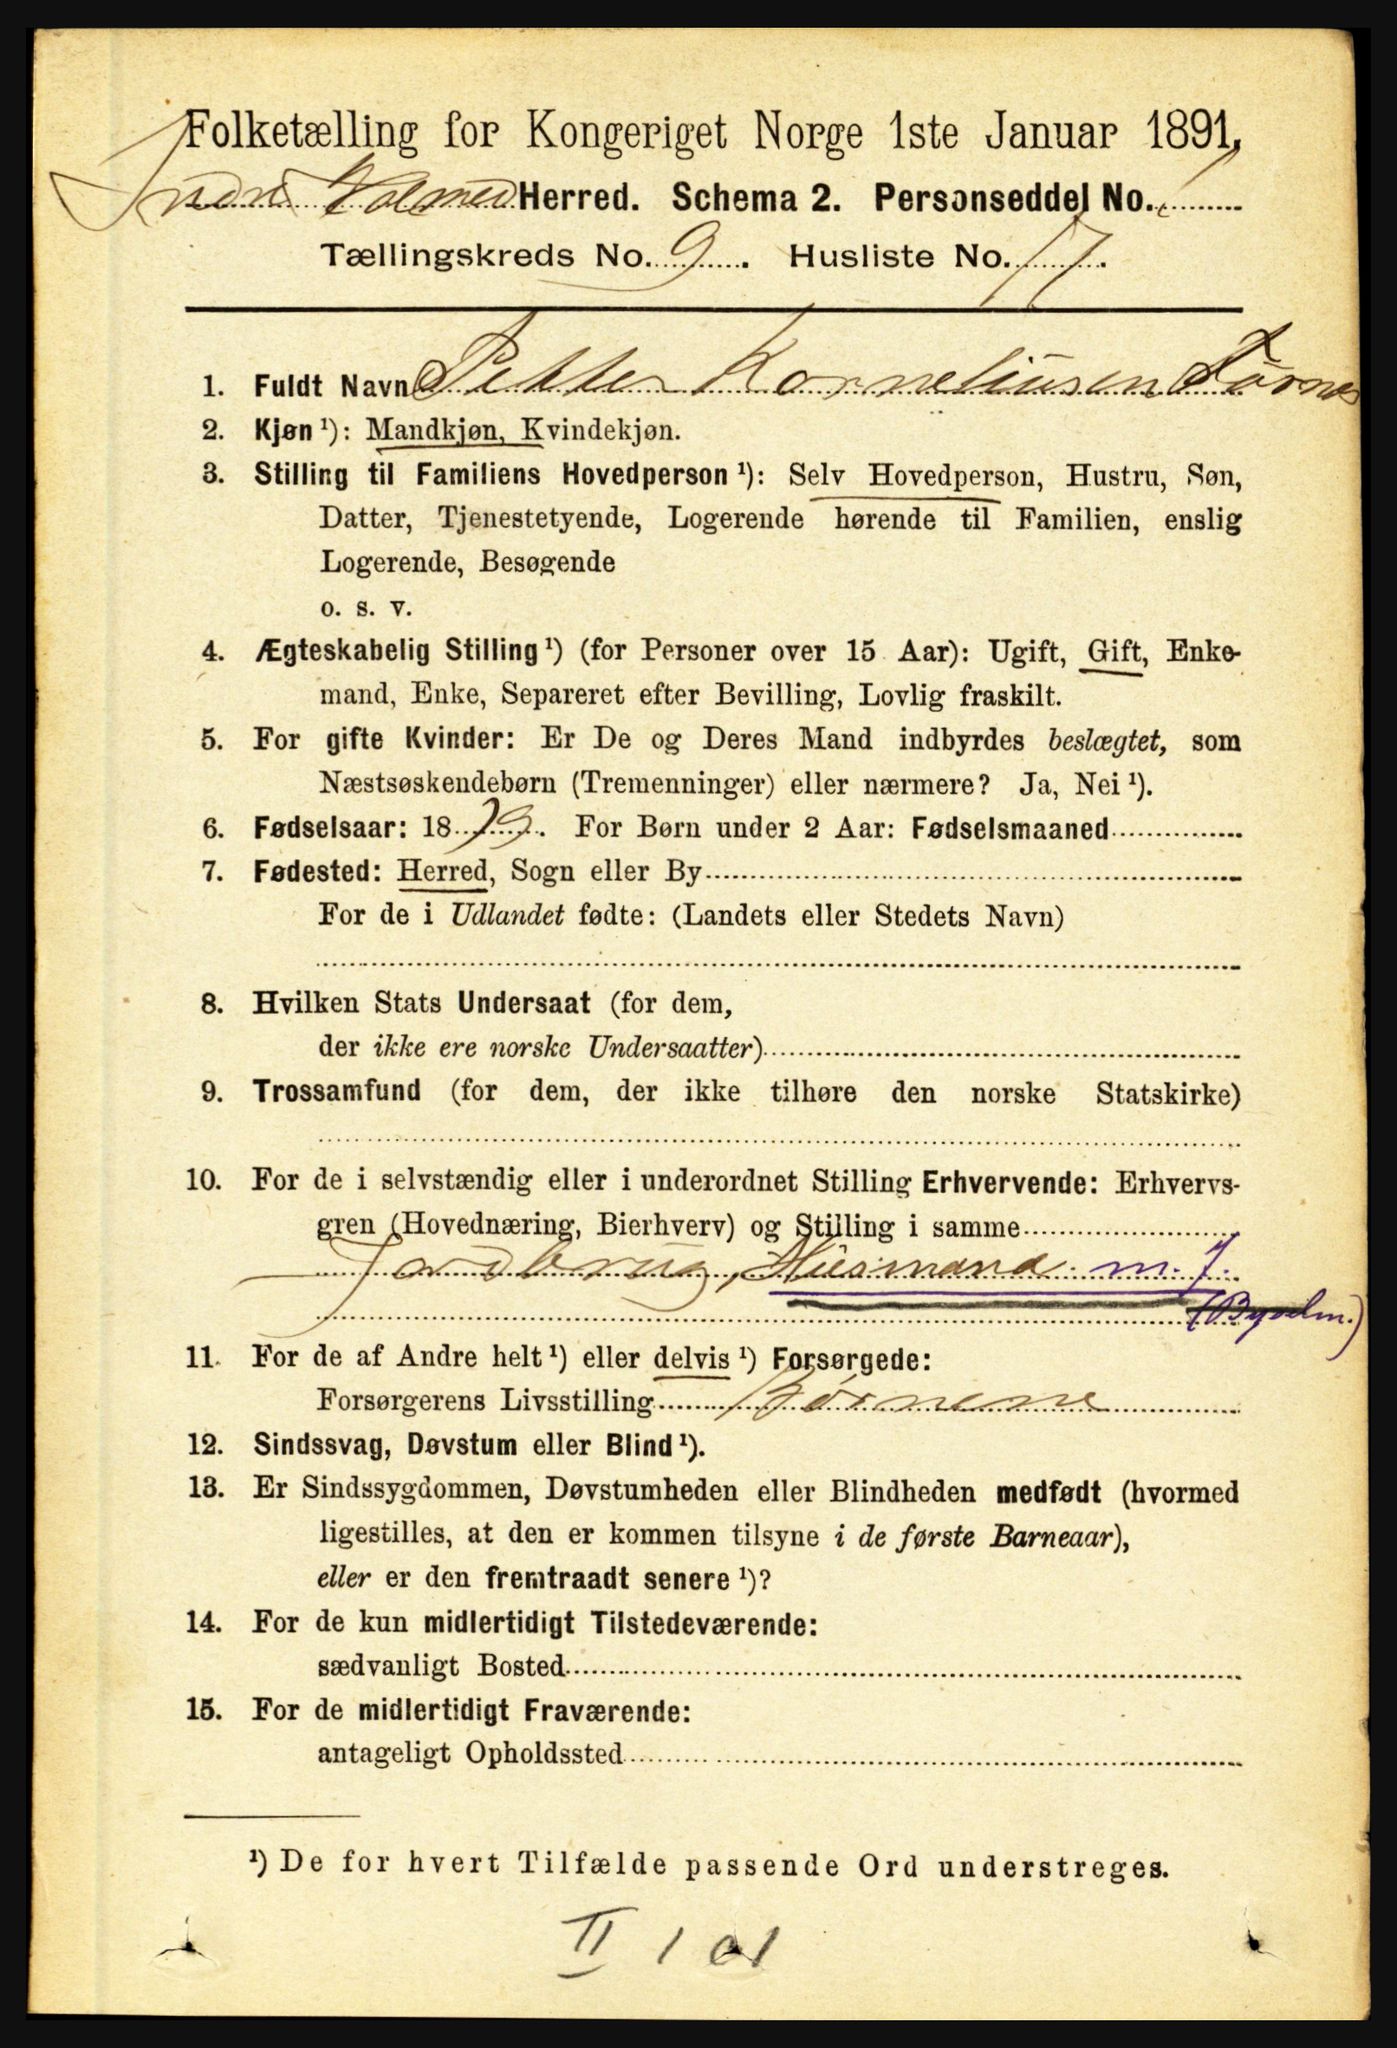 Folketælling for Kongeriget Norge 1ste Januar 1891.
Indre Holmed Herred. Schema 2. Personseddel No. 1
Tællingskreds No. 9. Husliste No. 17.
1. Fuldt Navn Petter Korneliusen Tørnes
2. Kjøn ¹): Mandkjøn, Kvindekjøn.
3. Stilling til Familiens Hovedperson ¹): Selv Hovedperson, Hustru, Søn,
Datter, Tjenestetyende, Logerende hørende til Familien, enslig
Logerende, Besøgende
o. s. v.
4. Ægteskabelig Stilling ¹) (for Personer over 15 Aar): Ugift, Gift, Enke-
mand, Enke, Separeret efter Bevilling, Lovlig fraskilt.
5. For gifte Kvinder: Er De og Deres Mand indbyrdes beslægtet, som
Næstsøskendebørn (Tremenninger) eller nærmere? Ja, Nei ¹).
6. Fødselsaar: 18 19. For Børn under 2 Aar: Fødselsmaaned
7. Fødested: Herred, Sogn eller By
For de i Udlandet fødte: (Landets eller Stedets Navn)
8. Hvilken Stats Undersaat (for dem,
der ikke ere norske Undersaatter)
9. Trossamfund (for dem, der ikke tilhøre den norske Statskirke)
10. For de i selvstændig eller i underordnet Stilling Erhvervende: Erhvervs-
gren (Hovednæring, Bierhverv) og Stilling i samme
Jordbrug, Husmand m. J.
11. For de af Andre helt ¹) eller delvis ¹) Forsørgede:
Forsørgerens Livsstilling Børnene
12. Sindssvag, Døvstum eller Blind ¹).
13. Er Sindssygdommen, Døvstumheden eller Blindheden medfødt (hvormed
ligestilles, at den er kommen tilsyne i de første Barneaar),
eller er den fremtraadt senere ¹)?
14. For de kun midlertidigt Tilstedeværende:
sædvanligt Bosted
15. For de midlertidigt Fraværende:
antageligt Opholdssted
¹) De for hvert Tilfælde passende Ord understreges.
II 1 01